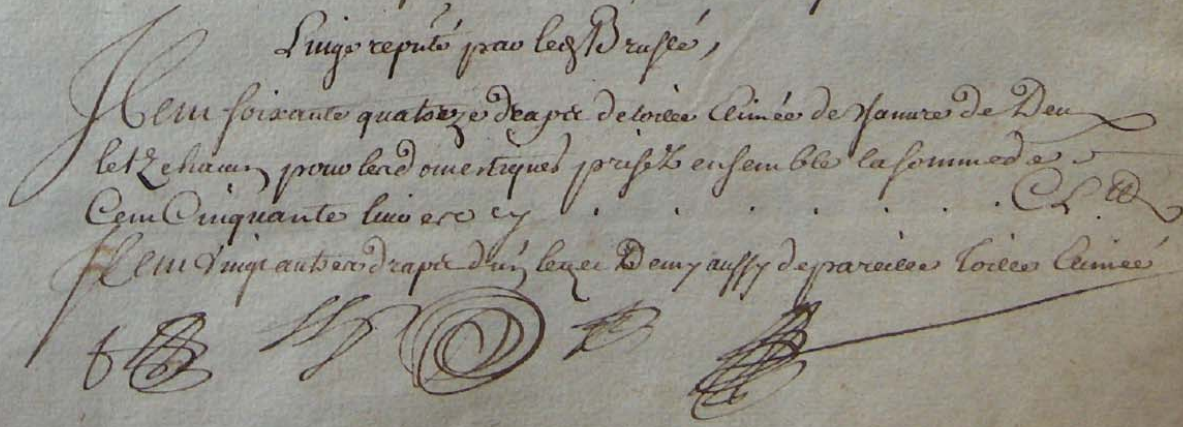 Linge reputé par led Bruslé,
Item soixante quatorze draps de toille de chanvre de Deux
lez chacun pour les domestiques prisez ensemble la somme de
Cent Cinquante livres cy . . . . . . . . CL lt
Item Vingt autres draps d'un lez et Demy aussy de pareille toille